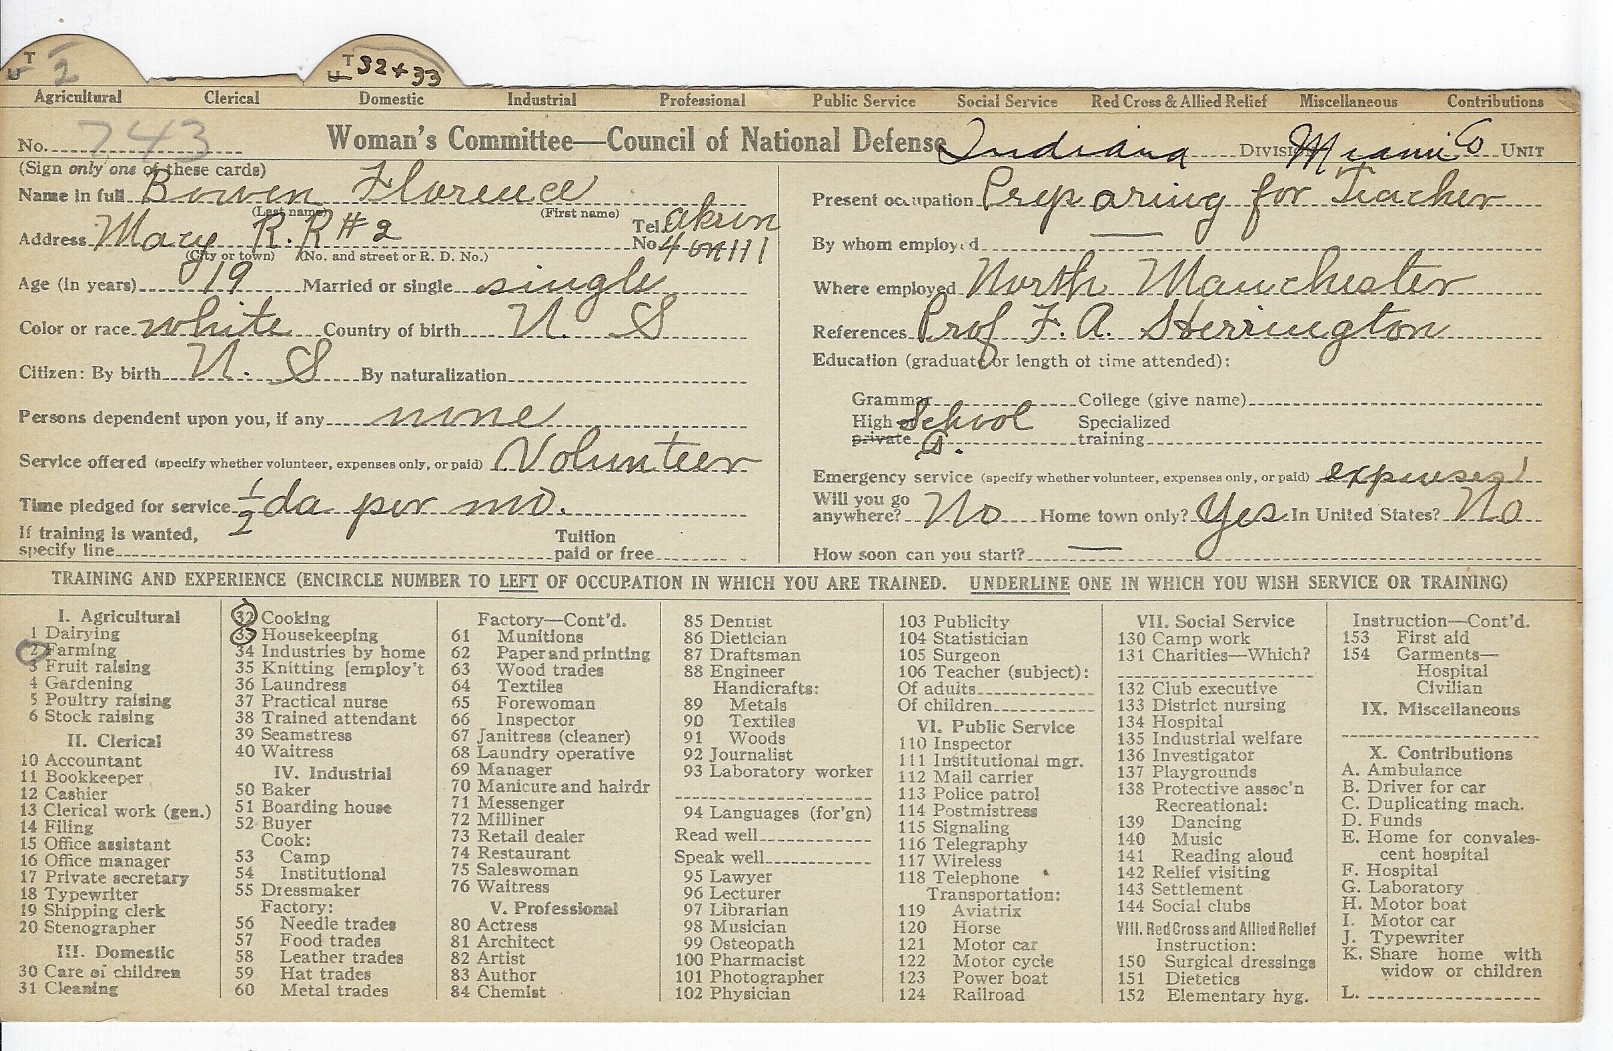 T U 2
T U 32+33
Agricultural Clerical Domestic Industrial Professional Public Service Social Service Red Cross & Allied Relief Miscellaneous Contributions
No. 743 Woman's Committee—Council of National Defense Indiana DIVISION Miami Co UNIT
(Sign only one of these cards)
Name in full Bowen Florence
(Last name) (First name)
Address Macy R.R # 2 Tel. No. akron 4 on 111
(City or town) (No. and street or R. D. No.)
Age (in years) 19 Married or single single
Color or race white Country of birth U. S
Citizen: By birth U. S By naturalization
Persons dependent upon you, if any none
Service offered (specify whether volunteer, expenses only, or paid) Volunteer
Time pledged for service 1/2 da per mo.
If training is wanted, specify line Tuition paid or free
Present occupation Preparing for Teacher
By whom employed —
Where employed North Manchester
References Prof F. A. Sherrington
Education (graduate or length of time attended):
Grammar College (give name)
High School Specialized
private training
Emergency service (specify whether volunteer, expenses only, or paid) expenses
Will you go anywhere? No Home town only? Yes In United States? No
How soon can you start? —
TRAINING AND EXPERIENCE (ENCIRCLE NUMBER TO LEFT OF OCCUPATION IN WHICH YOU ARE TRAINED. UNDERLINE ONE IN WHICH YOU WISH SERVICE OR TRAINING)
I. Agricultural
1 Dairying
2 Farming
3 Fruit raising
4 Gardening
5 Poultry raising
6 Stock raising
II. Clerical
10 Accountant
11 Bookkeeper
12 Cashier
13 Clerical work (gen.)
14 Filing
15 Office assistant
16 Office manager
17 Private secretary
18 Typewriter
19 Shipping clerk
20 Stenographer
III. Domestic
30 Care of children
31 Cleaning
32 Cooking
33 Housekeeping
34 Industries by home
35 Knitting [employ't
36 Laundress
37 Practical nurse
38 Trained attendant
39 Seamstress
40 Waitress
IV. Industrial
50 Baker
51 Boarding house
52 Buyer
Cook:
53 Camp
54 Institutional
55 Dressmaker
Factory:
56 Needle trades
57 Food trades
58 Leather trades
59 Hat trades
60 Metal trades
Factory—Cont'd.
61 Munitions
62 Paper and printing
63 Wood trades
64 Textiles
65 Forewoman
66 Inspector
67 Janitress (cleaner)
68 Laundry operative
69 Manager
70 Manicure and hairdr
71 Messenger
72 Milliner
73 Retail dealer
74 Restaurant
75 Saleswoman
76 Waitress
V. Professional
80 Actress
81 Architect
82 Artist
83 Author
84 Chemist
85 Dentist
86 Dietician
87 Draftsman
88 Engineer
Handicrafts:
89 Metals
90 Textiles
91 Woods
92 Journalist
93 Laboratory worker
94 Languages (for'gn)
Read well
Speak well
95 Lawyer
96 Lecturer
97 Librarian
98 Musician
99 Osteopath
100 Pharmacist
101 Photographer
102 Physician
103 Publicity
104 Statistician
105 Surgeon
106 Teacher (subject):
Of adults
Of children
VI. Public Service
110 Inspector
111 Institutional mgr.
112 Mail carrier
113 Police patrol
114 Postmistress
115 Signaling
116 Telegraphy
117 Wireless
118 Telephone
Transportation:
119 Aviatrix
120 Horse
121 Motor car
122 Motor cycle
123 Power boat
124 Railroad
VII. Social Service
130 Camp work
131 Charities—Which?
132 Club executive
133 District nursing
134 Hospital
135 Industrial welfare
136 Investigator
137 Playgrounds
138 Protective assoc'n
Recreational:
139 Dancing
140 Music
141 Reading aloud
142 Relief visiting
143 Settlement
144 Social clubs
VIII. Red Cross and Allied Relief
Instruction:
150 Surgical dressings
151 Dietetics
152 Elementary hyg.
Instruction—Cont'd.
153 First aid
154 Garments—
Hospital
Civilian
IX. Miscellaneous
X. Contributions
A. Ambulance
B. Driver for car
C. Duplicating mach.
D. Funds
E. Home for convales-
cent hospital
F. Hospital
G. Laboratory
H. Motor boat
I. Motor car
J. Typewriter
K. Share home with
widow or children
L.